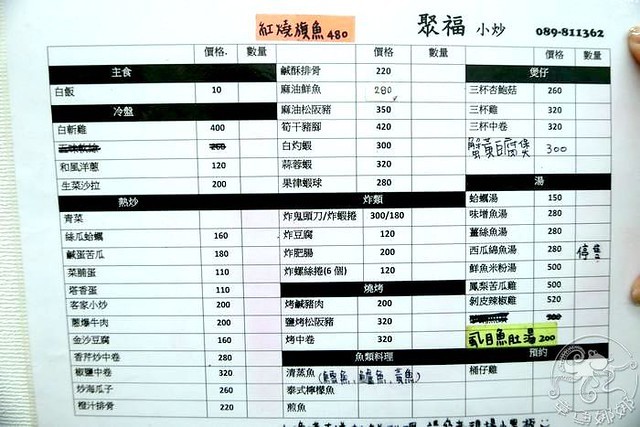 紅燒旗魚480
聚福 小炒 089-811362
價格. 數量
主食
白飯 10
冷盤
白斬雞 400
260
和風洋蔥 120
生菜沙拉 200
熱炒
青菜
絲瓜蛤蠣 160
鹹蛋苦瓜 180
菜脯蛋 110
塔香蛋 110
客家小炒 200
蔥爆牛肉 200
金沙豆腐 160
香芹炒中卷 280
椒鹽中卷 320
炒海瓜子 260
橙汁排骨 220
價格 數量
鹹酥排骨 220
麻油鮮魚 280
麻油松阪豬 350
筍干豬腳 420
白灼蝦 300
蒜蓉蝦 320
果律蝦球 280
炸類
炸鬼頭刀/炸蝦捲 300/180
炸豆腐 120
炸肥腸 200
炸螺絲捲(6個) 120
燒烤
烤鹹豬肉 200
鹽烤松阪豬 320
烤中卷 320
魚類料理
清蒸魚(鱈魚,鱸魚,黃魚)
泰式檸檬魚
煎魚
價格 數量
煲仔
三杯杏鮑菇 260
三杯雞 320
三杯中卷 320
蟹黃豆腐煲 300
湯
蛤蠣湯 150
味增魚湯 280
薑絲魚湯 280
西瓜綿魚湯 280 停售
鮮魚米粉湯 500
鳳梨苦瓜雞 500
剝皮辣椒雞 520
虱目魚肚湯 200
預約
桶仔雞